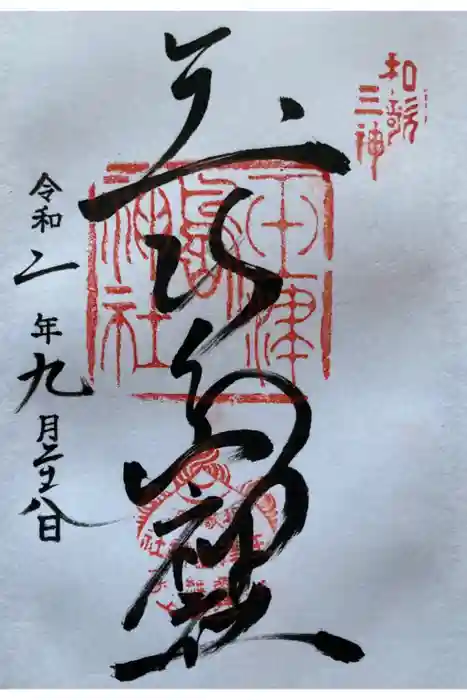 和歌三神
玉津島神社
玉津島神社
令和二年九月二十八日